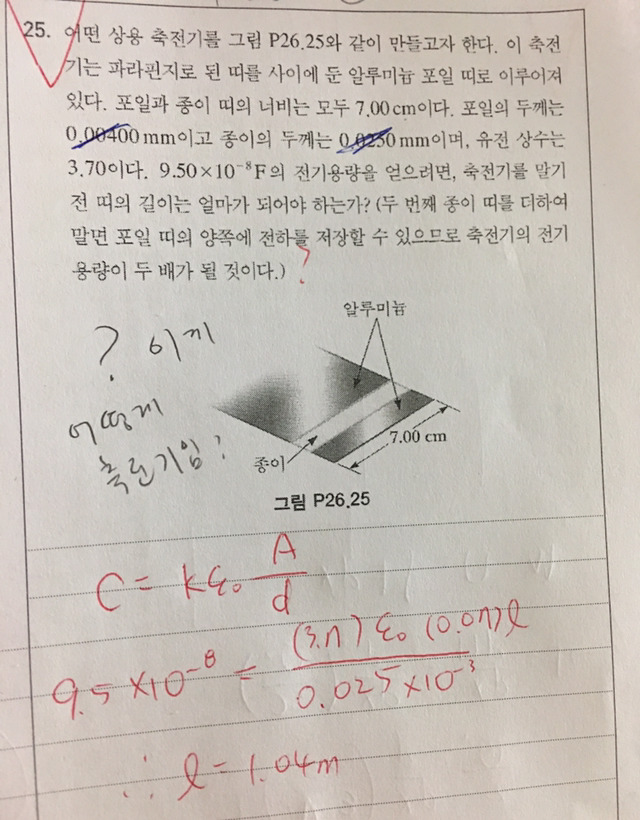 25. 어떤 상용 축전기를 그림 P26.25와 같이 만들고자 한다. 이 축전
기는 파라핀지로 된 띠를 사이에 둔 알루미늄 포일 띠로 이루어져
있다. 포일과 종이 띠의 너비는 모두 7.00 cm이다. 포일의 두께는
0.00400 mm이고 종이의 두께는 0.0250 mm이며, 유전 상수는
3.70이다. 9.50×10⁻⁸F의 전기용량을 얻으려면, 축전기를 말기
전 띠의 길이는 얼마가 되어야 하는가? (두 번째 종이 띠를 더하여
말면 포일 띠의 양쪽에 전하를 저장할 수 있으므로 축전기의 전기
용량이 두 배가 될 것이다.) ?
알루미늄
? 이게
어떻게
축전기임?
7.00 cm
종이
그림 P26.25
C = kε₀ A/d
9.5×10⁻⁸ = (3.7) ε₀ (0.07)l / 0.025×10⁻³
∴ l = 1.04m